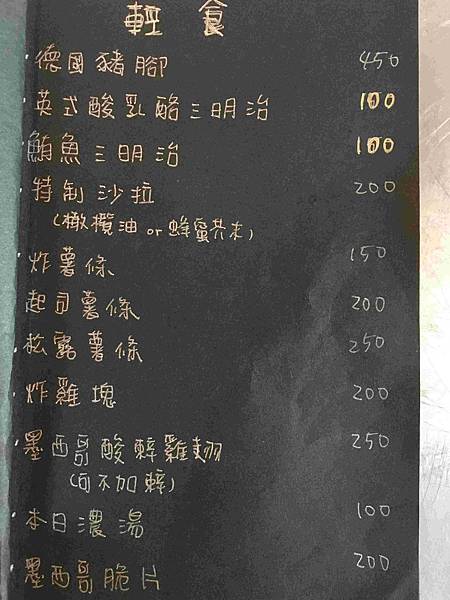 輕食
德國豬腳 450
英式酸乳酪三明治 100
鮪魚三明治 100
特制沙拉 200
(橄欖油 or 蜂蜜芥末)
炸薯條 150
起司薯條 200
松露薯條 250
炸雞塊 200
墨西哥酸辣雞翅 250
(可不加辣)
本日濃湯 100
墨西哥脆片 200